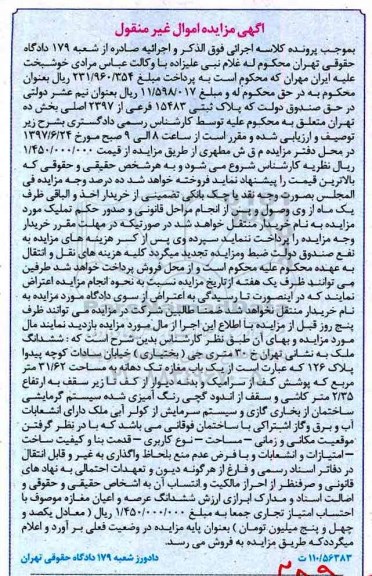 آگهی مزایده اموال غیر منقول
بموجب پرونده کلاسه اجرائی فوق الذکر و اجرائیه صادره از شعبه ۱۷۹ دادگاه
حقوقی تهران محکوم له غلام نبی علیزاده با وکالت عباس مرادی خوشبخت
علیه ایران مهران که محکوم است به پرداخت مبلغ ۲۳۱/۹۶۰/۳۵۴ ریال بعنوان
محکوم به در حق محکوم له و مبلغ ۱۱/۵۹۸/۰۱۷ ریال بعنوان نیم عشر دولتی
در حق صندوق دولت که پلاک ثبتی ۱۵۴۸۳ فرعی از ۲۳۹۷ اصلی بخش ده
تهران متعلق به محکوم علیه توسط کارشناس رسمی دادگستری بشرح زیر
توصیف و ارزیابی شده و مقرر است از ساعت ۸ الی ۹ صبح مورخ ۱۳۹۷/۶/۲۴
در محل دفتر مزایده م ق ش مطهری از طریق مزایده از قیمت ۱/۴۵۰/۰۰۰/۰۰۰
ریال نظریه کارشناس شروع می شود و به هرشخص حقیقی و حقوقی که
بالاترین قیمت را پیشنهاد نماید فروخته خواهد شد ده درصد وجه مزایده فی
المجلس بصورت وجه نقد یا چک بانکی تضمینی از خریدار اخذ و الباقی ظرف
یک ماه از وی وصول و پس از انجام مراحل قانونی و صدور حکم تملیک مورد
مزایده به نام خریدار منتقل خواهد شد در صورتیکه در مهلت مقرر خریدار
وجه مزایده را پرداخت ننماید سپرده وی پس از کسر هزینه های مزایده به
نفع صندوق دولت ضبط ومزایده تجدید میگردد کلیه هزینه های نقل و انتقال
به عهده محکوم علیه محکوم است و از محل فروش پرداخت خواهد شد طرفین
می توانند ظرف یک هفته از تاریخ مزایده نسبت به نحوه انجام مزایده اعتراض
نمایند که در اینصورت تا رسیدگی به اعتراض از سوی دادگاه مورد مزایده به
نام خریدار منتقل نخواهد شد ضمنا طالبین شرکت در مزایده می توانند ظرف
پنج روز قبل از مزایده با اطلاع این اجرا از مال مورد مزایده بازدید نمایند مال
مورد مزایده و بهای آن طبق نظر کارشناس بدین شرح است که : ششدانگ
ملک به نشانی تهران خ ۳۰ متری جی ( بختیاری ) خیابان سادات کوچه پیدوا
پلاک ۱۲۶ که عبارت است از یک باب مغازه تک دهانه به مساحت ۳۱/۶۲ متر
مربع که پوشش کف از سرامیک و بدنه دیوار از کف تا زیر سقف به ارتفاع
۲/۳۵ متر کاشی و سقف از اندود گچی رنگ آمیزی شده سیستم گرمایشی
ساختمان از بخاری گازی و سیستم سرمایش از کولر آبی ملک دارای انشعابات
آب و برق وگاز اشتراکی با ساختمان فوقانی می باشد که با در نظر گرفتن
موقعیت مکانی و زمانی – مساحت – نوع کاربری – قدمت بنا و کیفیت ساخت
– امتیازات و انشعابات و با فرض عدم منع بلحاظ واگذاری به غیر و قابل انتقال
در دفاتر اسناد رسمی و فارغ از هرگونه دیون و تعهدات احتمالی به نهاد های
قانونی و صرفنظر از احراز مالکیت و انتساب آن به اشخاص حقیقی و حقوقی و
اصالت اسناد و مدارک ابرازی ارزش ششدانگ عرصه و اعیان مغازه موصوف با
احتساب امتیاز تجاری جمعا به مبلغ ۱/۴۵۰/۰۰۰/۰۰۰ ریال ( معادل یکصد و
چهل و پنج میلیون تومان ) بعنوان پایه مزایده در وضعیت فعلی بر آورد و اعلام
میگرددکه طریق مزایده به فروش می رسد.
۱۱۰/۵۶۳۸۳ ت دادورز شعبه ۱۷۹ دادگاه حقوقی تهران